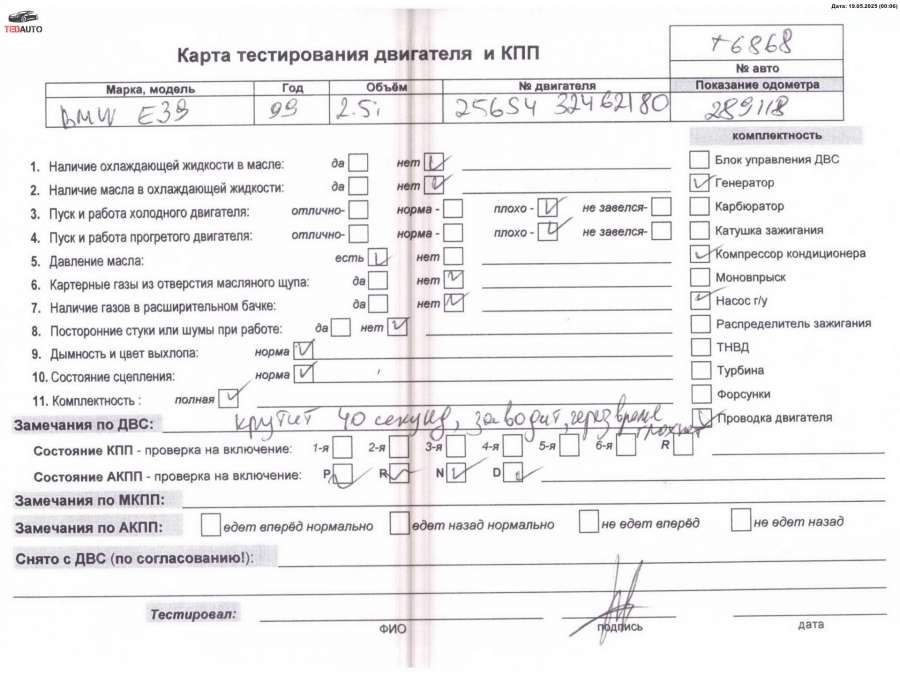 Дата: 19.05.2025 (00:06)
TEDAUTO
Карта тестирования двигателя и КПП
т6868
№ авто
Марка, модель Год Объём № двигателя Показание одометра
BMW E39 99 2.5i 256S4 32462180 289118
комплектность
1. Наличие охлаждающей жидкости в масле: да нет
2. Наличие масла в охлаждающей жидкости: да нет
3. Пуск и работа холодного двигателя: отлично- норма - плохо - не завелся-
4. Пуск и работа прогретого двигателя: отлично- норма - плохо - не завелся-
5. Давление масла: есть нет
6. Картерные газы из отверстия масляного щупа: да нет
7. Наличие газов в расширительном бачке: да нет
8. Посторонние стуки или шумы при работе: да нет
9. Дымность и цвет выхлопа: норма
10. Состояние сцепления: норма
11. Комплектность : полная
Блок управления ДВС
Генератор
Карбюратор
Катушка зажигания
Компрессор кондиционера
Моновпрыск
Насос г/у
Распределитель зажигания
ТНВД
Турбина
Форсунки
Проводка двигателя
Замечания по ДВС: крутит 40 секунд, заводит, через время глохнет
Состояние КПП - проверка на включение: 1-я 2-я 3-я 4-я 5-я 6-я R
Состояние АКПП - проверка на включение: P R N D
Замечания по МКПП:
Замечания по АКПП: едет вперёд нормально едет назад нормально не едет вперёд не едет назад
Снято с ДВС (по согласованию!):
Тестировал:
ФИО подпись дата